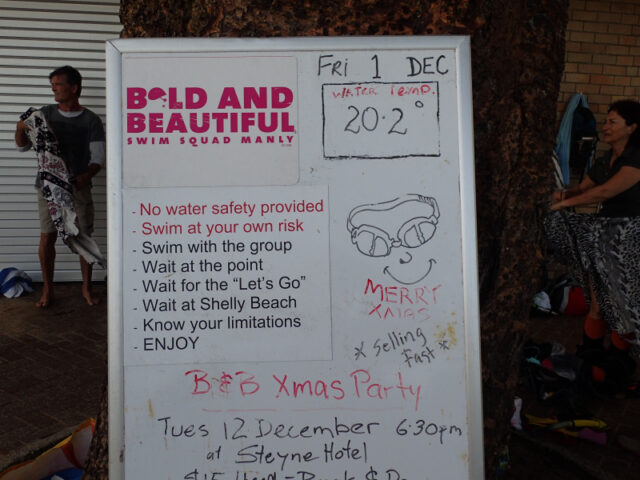 BOLD AND
BEAUTIFUL
SWIM SQUAD MANLY
Fri 1 DEC
WATER Temp.
20.2°
- No water safety provided
- Swim at your own risk
- Swim with the group
- Wait at the point
- Wait for the “Let's Go”
- Wait at Shelly Beach
- Know your limitations
- ENJOY
MERRY
XMAS
* Selling
fast *
B&B Xmas Party
Tues 12 December 6:30pm
at Steyne Hotel
$15 Head -